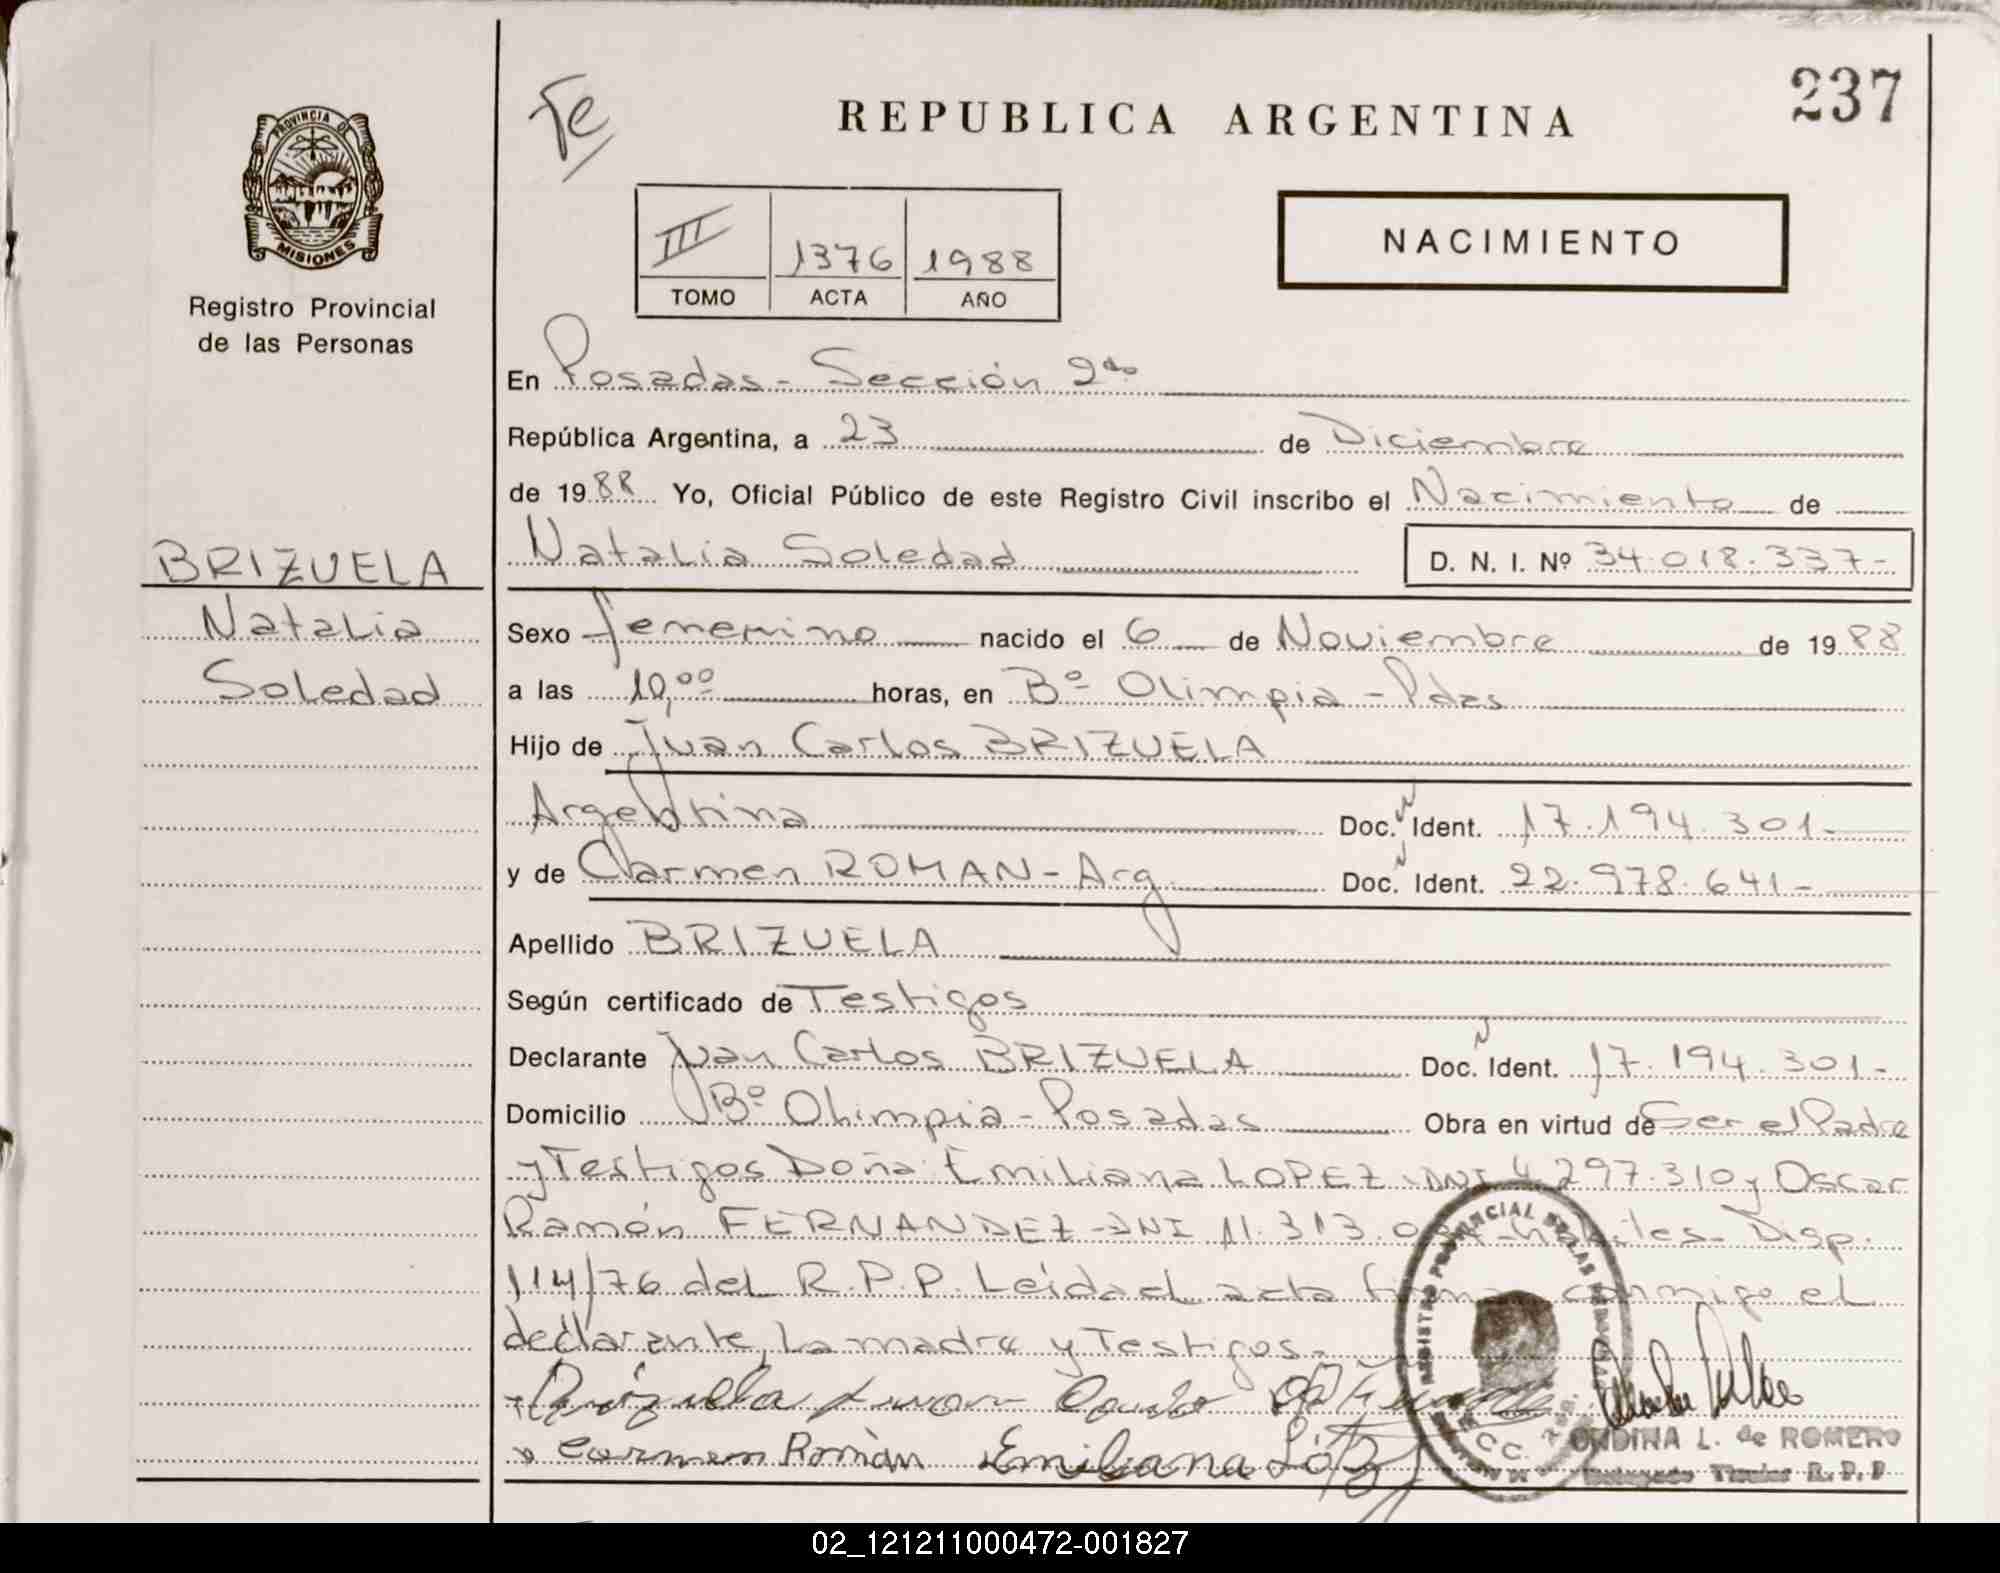 237
Fe
REPUBLICA ARGENTINA
PROVINCIA DE
MISIONES
Registro Provincial
de las Personas
III 1376 1988
TOMO ACTA AÑO
NACIMIENTO
En Posadas - Sección 2da
República Argentina, a 23 de Diciembre
de 1988 Yo, Oficial Público de este Registro Civil inscribo el Nacimiento de
BRIZUELA
Natalia
Soledad
Natalia Soledad D. N. I. Nº 34.018.337-
Sexo femenino nacido el 6 de Noviembre de 1988
a las 10,00 horas, en Bº Olimpia - Pdas
Hijo de Juan Carlos BRIZUELA
Argentina Doc. Ident. 17.194.301-
y de Carmen ROMAN - Arg. Doc. Ident. 22.978.641-
Apellido BRIZUELA
Según certificado de Testigos
Declarante Juan Carlos BRIZUELA Doc. Ident. 17.194.301-
Domicilio Bº Olimpia - Posadas Obra en virtud de Ser el Padre
y Testigos Doña Emiliana LOPEZ DNI 4.297.310 y Oscar
Ramón FERNANDEZ - DNI 11.313. hábiles - Disp.
114/76 del R.P.P. Leída el acta firman conmigo el
declarante, la madre y Testigos.-
Brizuela Juan
Carmen Román Emiliana
REGISTRO PROVINCIAL DE LAS PERSONAS
ONDINA L. de ROMERO
Delegado Titular R.P.P.
02_121211000472-001827